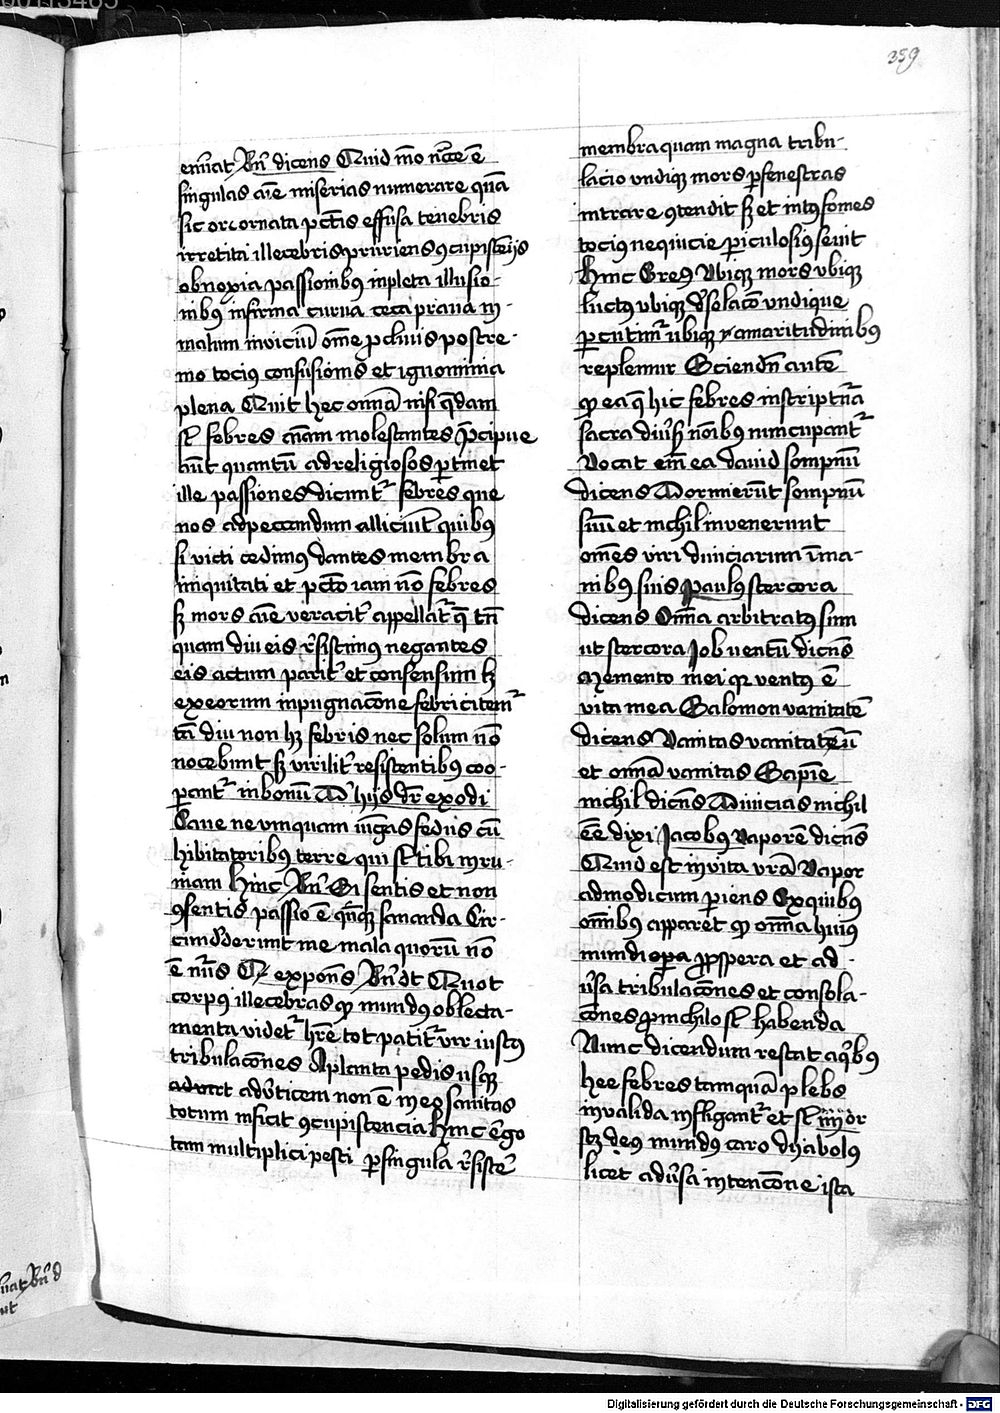 359
em̄at Bn̄ dicens Quid m̄o nc̄ce ē
singulas aīe miserias numerare qn̄a
sic ornata pctīs effusa tenebris
irretita illecebris pruriens ꝯcupiscēijs
obnoxia passionibꝰ inpleta illusio-
nibꝰ infirma curua ceca prana in
malum inviciū om̄e ꝓcliuis postre-
mo tociꝰ confusionis et ignominia
plena Quit hec om̄ia nisi qedam
st̄ febres aīam molestantes Precipue
aūt quantū ad religiosos ꝑtinet
ille passiones dicunt᷑ febres que
nos ad peccandum alliciūt quibꝰ
si victi cedimꝰ dantes membra
iniquitati et pccō iam nō febres
sꝫ mors aīe veracit᷑ appellat᷑ qꝫ tn̄
quam diu eis r̄sistimꝰ negantes
eis actum parit᷑ et consensum lꝫ
ex eorum inpugnacōne febricitem᷑
tā diu non hꝫ febris nec solum nō
nocebunt sꝫ virilit᷑ resistentibꝰ coo-
ꝑant᷑ in bonū Ad hijs dr̄ exodi
Caue ne vmquam iūgas fediis cū
hibitatoribꝰ terre qui st̄ tibi in ru-
inam Hinc Bn̄ Si sentis et non
ꝯsentis passio ē qn̄qꝫ sananda Cir-
cumdederunt me mala quorū nō
ē nūs Qꝫ expon̄s Bn̄ dt Quot
corpꝰ illecebras qꝫ mundꝰ oblecta-
menta videt᷑ hr̄e tot patit᷑ vir iustꝰ
tribulacōnes A planta pedis usqꝫ
ad v̄ticem non ē in eo sanitas
totum inficit ꝯcupiscencia Hinc ēgo
tam multiplici pesti ꝑ singula r̄sistē
membra quam magna tribu-
lacio vndiqꝫ mors ꝑ fenestras
intrare ꝯtendit sꝫ et intꝰ fomes
tociꝰ nequicie ꝑiculosiꝰ seuit
Hinc Gregꝰ Vbiqꝫ mors vbiqꝫ
luctꝰ vbiqꝫ d̄solacō vndique
ꝑcutim᷑ ubiqꝫ amaritudinibꝰ
replemur Sciendū autē
qꝫ ea qꝫ hic febres in scriptūa
sacra diūsꝫ noībꝰ nuncupant᷑
Vocat em̄ ea dauid sompnū
dicens Dormierūt sompnū
suū et nichil invenerunt
om̄es viri diuiciarum ī ma-
nibꝰ suis Paulꝰ stercora
dicens Om̄ia arbitratꝰ sum
ut stercora Job uentū dicn̄s
Memento mei qꝛ ventꝰ ē
vita mea Salomon vanitatē
dicens Vanitas vanitatū
et om̄ia vanitas Sapiē
nichil dicn̄s Diuicias nichil
ēē dixi Jacobus vaporē dicn̄s
Quid est in vita vr̄a Vapor
ad modicum ꝑiens Ex quibꝰ
om̄ibus apparet qꝫ om̄ia huiꝰ
mundi opa ꝓspera et ad-
ūsa tribulacōnes et consola-
cōnes ꝓ nichilo st̄ habenda
Nunc dicendum restat a qͥbꝰ
hee febres tamquā plebs
invalida infligant᷑ et st̄ iiij or
scꝫ deꝰ mundꝰ caro dyabolꝰ
licet adūsa intencōne ista
Digitalisierung gefördert durch die Deutsche Forschungsgemeinschaft - DFG